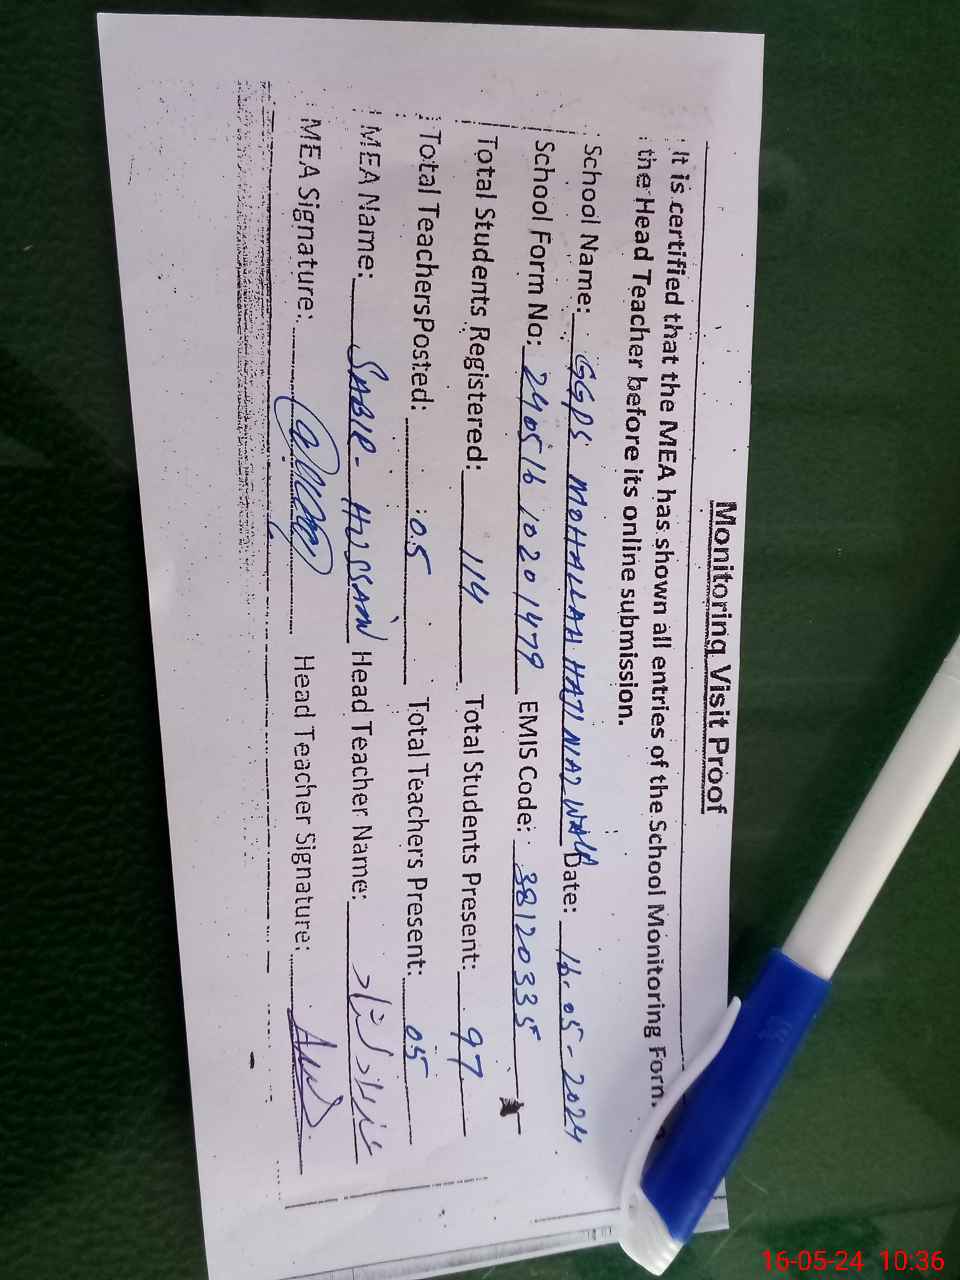 Monitoring Visit Proof
It is certified that the MEA has shown all entries of the School Monitoring Form
the Head Teacher before its online submission.
School Name: GGPS MOHALLAH HAJI NIAZ WALA Date: 16-05-2024
School Form No: 240516 10201479 EMIS Code: 38120335
Total Students Registered: 114 Total Students Present: 97
Total TeachersPosted: 05 Total Teachers Present: 05
MEA Name: SABIR- HUSSAIN Head Teacher Name:
MEA Signature: Head Teacher Signature:
16-05-24 10:36